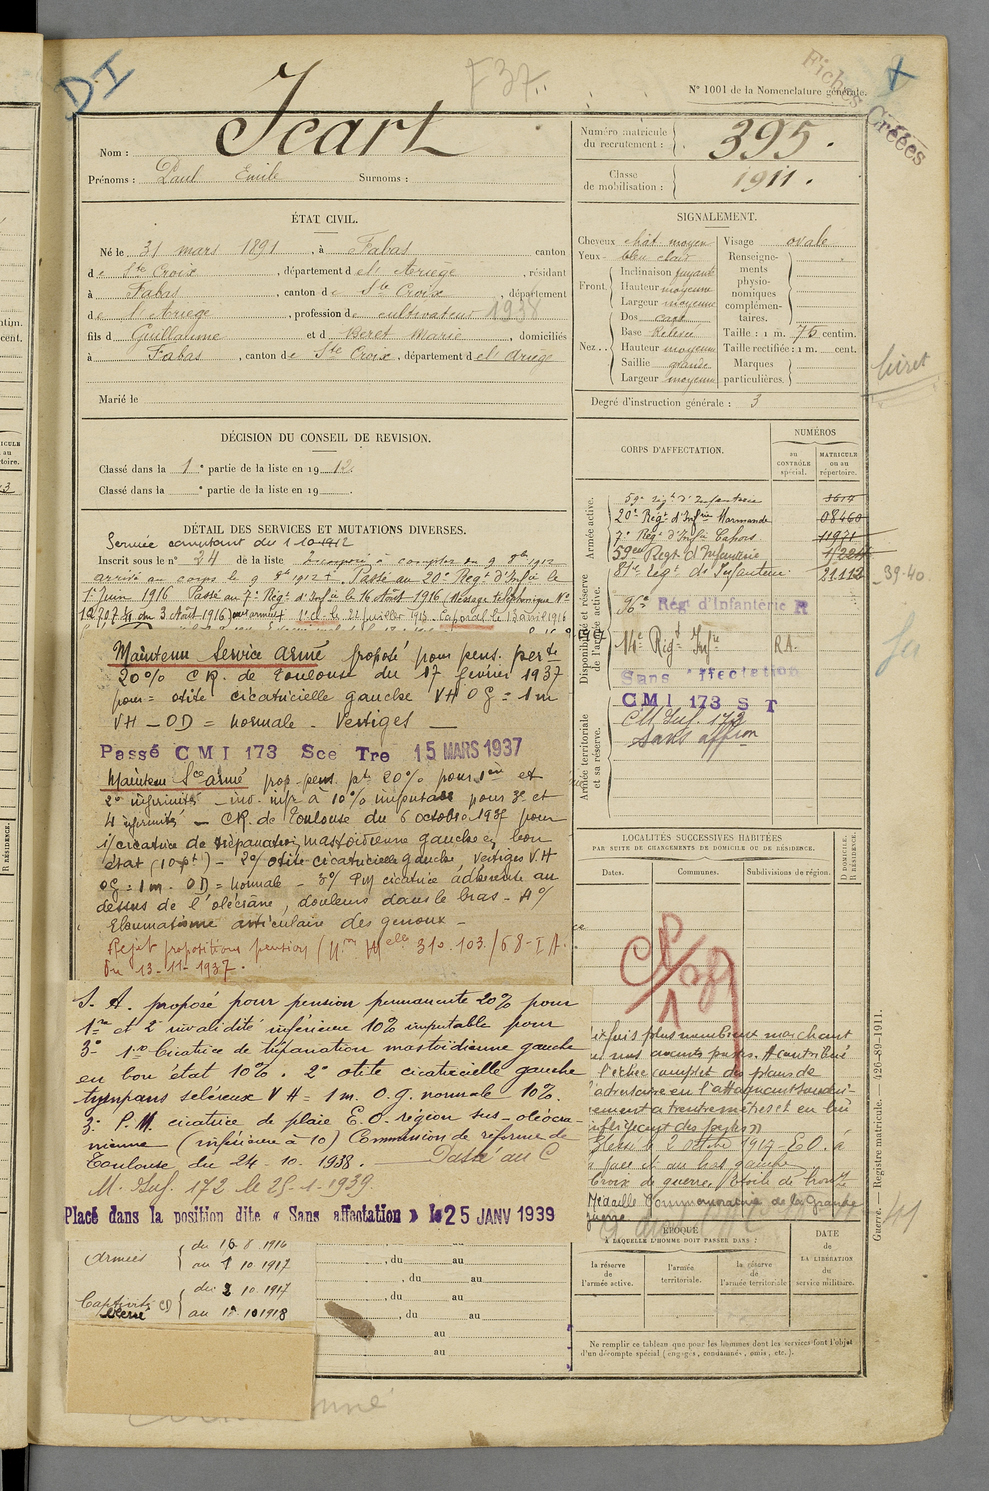 DI
F37
N° 1001 de la Nomenclature générale.
Fiches Créées
Nom : Icart
Prénoms : Paul Emile Surnoms :
Numéro matricule du recrutement : 395.
Classe de mobilisation : 1911.
ÉTAT CIVIL.
Né le 31 mars 1891, à Fabas canton
de Ste Croix, département de l'Ariège, résidant
à Fabas, canton de Ste Croix, département
de l'Ariège, profession de cultivateur 1938
fils d Guillaume et d Beret Marie, domiciliés
à Fabas, canton de Ste Croix, département de l'Ariège
Marié le
SIGNALEMENT.
Cheveux chât moyen
Yeux bleu clair
Front. Inclinaison fuyante
Hauteur moyenne
Largeur moyenne
Nez.. Dos cave
Base Relevée
Hauteur moyenne
Saillie grande
Largeur moyenne
Visage ovale
Renseignements physionomiques complémentaires.
Taille : 1 m. 75 centim.
Taille rectifiée : 1 m. cent.
Marques particulières.
Degré d'instruction générale : 3
livret
DÉCISION DU CONSEIL DE REVISION.
Classé dans la 1e partie de la liste en 1912.
Classé dans la e partie de la liste en 19
CORPS D'AFFECTATION.
NUMÉROS
au CONTRÔLE spécial.
MATRICULE ou au répertoire.
Armée active.
59e rég.t d'Infanterie
20e Reg.t d'Inf.rie Marmande 08460
7e Reg.t d'Inf.ie Cahors
59eme Reg.t d'Infanterie
81e Reg.t de Infanterie 21112
39-40
Disponibilité et réserve de l'armée active.
96e Rég d'Infanterie R
14e Rég.t Inf.ie R.A.
Sans affectation
CMI 173 S T
Armée territoriale et sa réserve.
CM Inf. 172
Sans affion
DÉTAIL DES SERVICES ET MUTATIONS DIVERSES.
Service comptant du 1 10 1912
Inscrit sous le n° 24 de la liste Incorporé à compter du 9 8bre 1912
arrivé au corps le 9 8bre 1912. Passé au 20e Reg.t d'Inf.ie le
1er Juin 1916 Passé au 7e Rég.t d'Inf.ie le 16 Août 1916 Message téléphonique N°
du 3 Août 1916 1e cl. le 21 juillet 1913 Caporal le 13 avril 1916
Maintenu Service armé proposé pour pens. perte
20% CR. de Toulouse du 17 fevrier 1937
pour = otite cicatricielle gauche VH OG = 1m
VH - OD = normale - Vertiges
Passé CMI 173 Sce Tre 15 MARS 1937
Maintenu Sce armé prop. pens. pte 20% pour 1ere et
2e infirmités - inv. infr à 10% imputable pour 3e et
4 infirmités - CR. de Toulouse du 6 octobre 1937 pour
1/ cicatrice de trépanation mastoïdienne gauche en bon
état (10 pt) - 2% otite cicatricielle gauche, vertiges VH
OG = 1m - OD = normale - 3% PM cicatrice adhérente au
dessus de l'olécrâne, douleurs dans le bras - 4%
Rhumatisme articulaire des genoux -
Rejet propositions pension 310.103/68-IA.
du 13-11-1937.
S. A. proposé pour pension permanente 20% pour
1re et 2e invalidité inférieure 10% imputable pour
3e 1re Cicatrice de trépanation mastoïdienne gauche
en bon état 10%. 2e otite cicatricielle gauche
tympans scléreux VH = 1m. O.g. normale 10%.
3e P.M. cicatrice de plaie E.O. région sus-olécra-
nienne (inférieure à 10) Commission de réforme de
Toulouse du 24-10-1938. Passé au C
M. Inf. 172 le 25-1-1939.
Placé dans la position dite « Sans affectation » le 25 JANV 1939
LOCALITÉS SUCCESSIVES HABITÉES
PAR SUITE DE CHANGEMENTS DE DOMICILE OU DE RÉSIDENCE.
Dates. Communes. Subdivisions de région. D DOMICILE. R RÉSIDENCE.
fois plus nombreux marchant
nos avants postes. A contribué
l'échec complet des plans de
l'adversaire en l'attaquant
à trente mètres et en lui
Blessé le 2 octobre 1917 - E.O. à
face et au bras gauche
Croix de guerre, étoile de bronze
Médaille Commémorative de la Grande
guerre
ÉPOQUE
À LAQUELLE L'HOMME DOIT PASSER DANS :
la réserve de l'armée active.
l'armée territoriale.
la réserve de l'armée territoriale
DATE de LA LIBÉRATION du service militaire.
Ne remplir ce tableau que pour les hommes dont les services font l'objet
d'un décompte spécial (engagés, condamnés, omis, etc.).
Armées du 16.8.1916
au 1 10 1917
Captivité du 2 10 1917
au 17.10.1918
, du au
, du au
, du au
, du au
au
au
Guerre. — Registre matricule. — 426-89-1911.
41